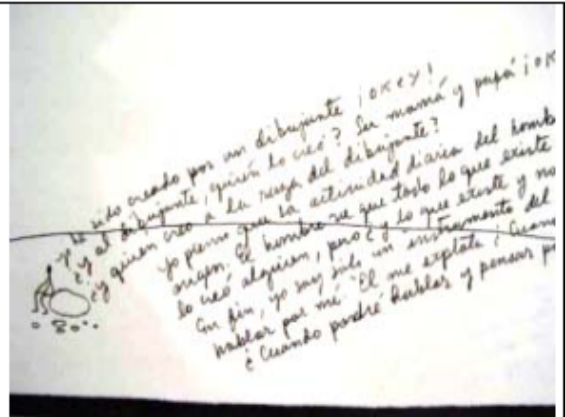 yo he sido creado por un dibujante ¡okey!
¿y al dibujante, quién lo creó? Su mamá y papá ¡ok
¿y quien creó a la raya del dibujante?
yo pienso que la actividad diaria del homb
origen. El hombre ve que todo lo que existe
lo creó alguien, pero ¿y lo que existe y no
En fin, yo soy solo un instrumento del
hablar por mí. El me explota ¿Cuand
¿Cuando podré hablar y pensar p